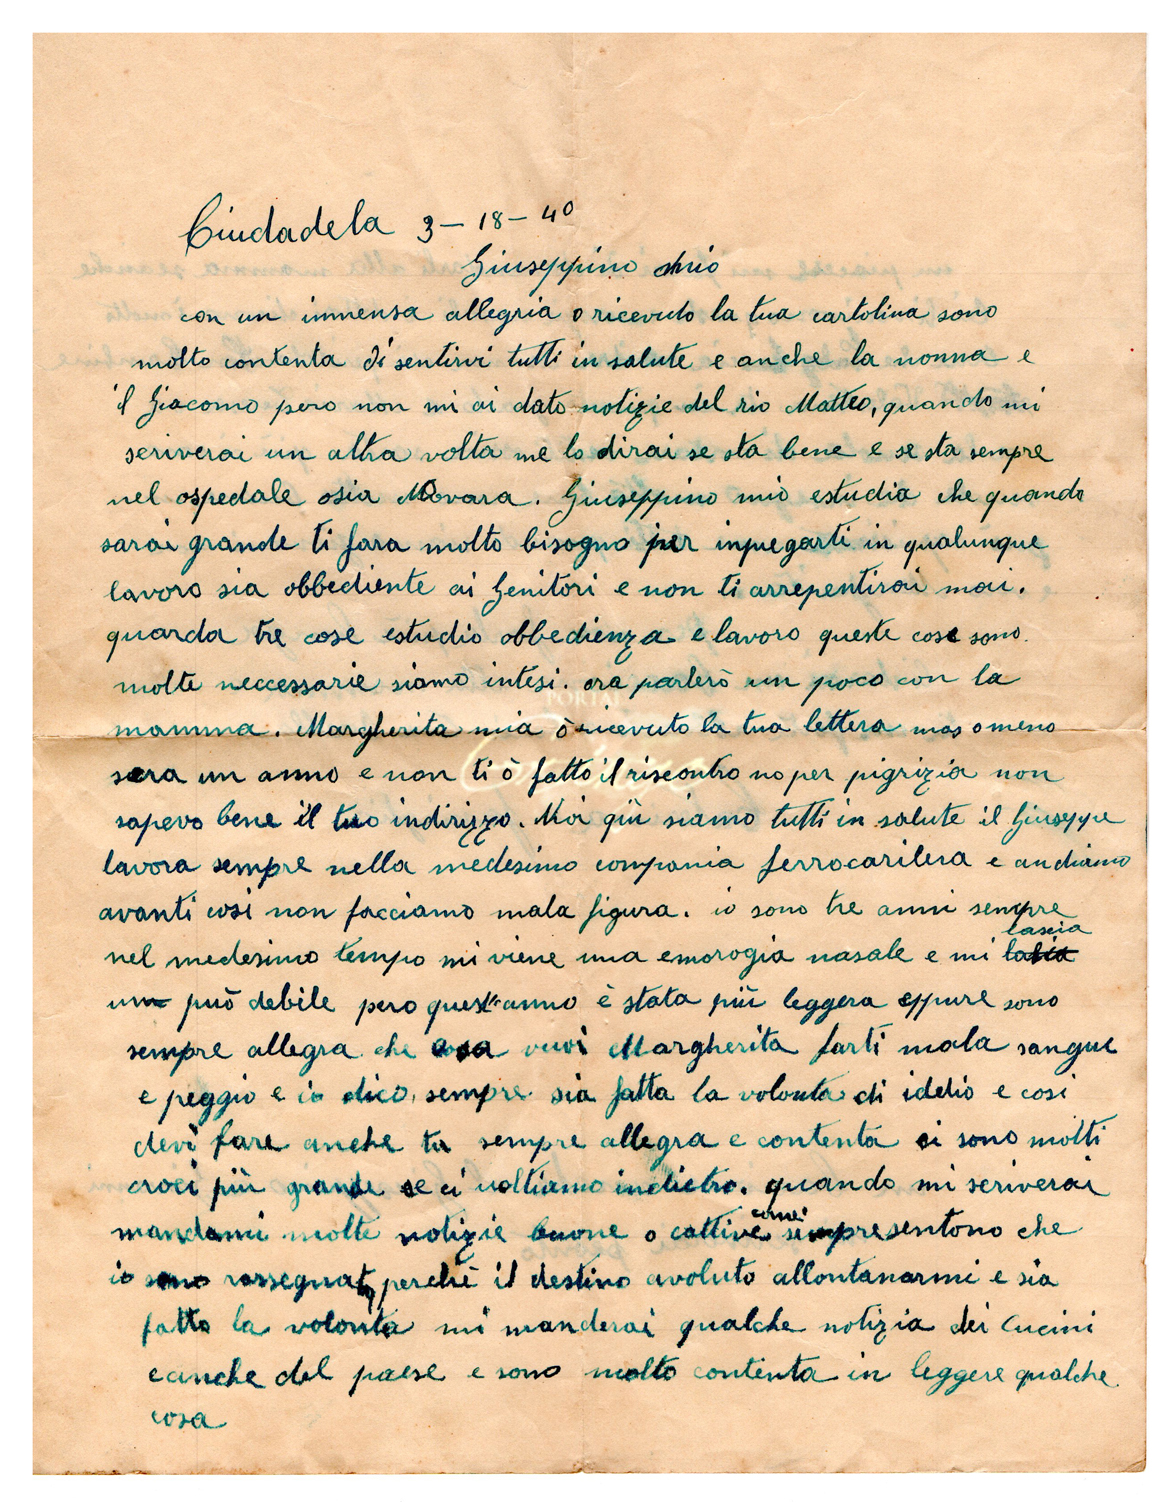 Ciudadela 3-18-40
Giuseppino mio
con un immensa allegria o ricevuto la tua cartolina sono
molto contenta di sentirvi tutti in salute e anche la nonna e
il Giacomo pero non mi ai dato notizie del zio Matteo, quando mi
scriverai un altra volta me lo dirai se sta bene e se sta sempre
nel ospedale osia Novara. Giuseppino mio estudia che quando
sarai grande ti fara molto bisogno per inpegarti in qualunque
lavoro sia obbediente ai Genitori e non ti arrepentirai mai.
guarda tre cose estudio obbedienza e lavoro queste cose sono
molte neccessarie siamo intesi. ora parlerò un poco con la
mamma. Margherita mia ò ricevuto la tua lettera mas o meno
sara un anno e non ti ò fatto il riscontro no per pigrizia non
sapevo bene il tuo indirizzo. Noi qui siamo tutti in salute il Giuseppe
lavora sempre nella medesimo compania ferrocarilera e andiamo
avanti cosi non facciamo mala figura. io sono tre anni sempre
nel medesimo tempo mi viene una emorogia nasale e mi lascia
un può debile pero quest'anno è stata più leggera eppure sono
sempre allegra che cosa vuoi Margherita farti mala sangue
e peggio e io dico sempre sia fatta la volonta di iddio e cosi
devi fare anche tu sempre allegra e contenta ci sono molti
croci più grande se ci voltiamo indietro. quando mi scriverai
mandami molte notizie buone o cattive come si presentono che
io sono rassegnata perchè il destino avoluto allontanarmi e sia
fatto la volonta mi manderai qualche notizia dei Cucini
e anche del paese e sono molto contenta in leggere qualche
cosa
PORTAL